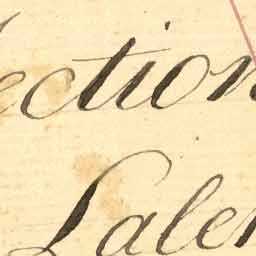 ection
Laler